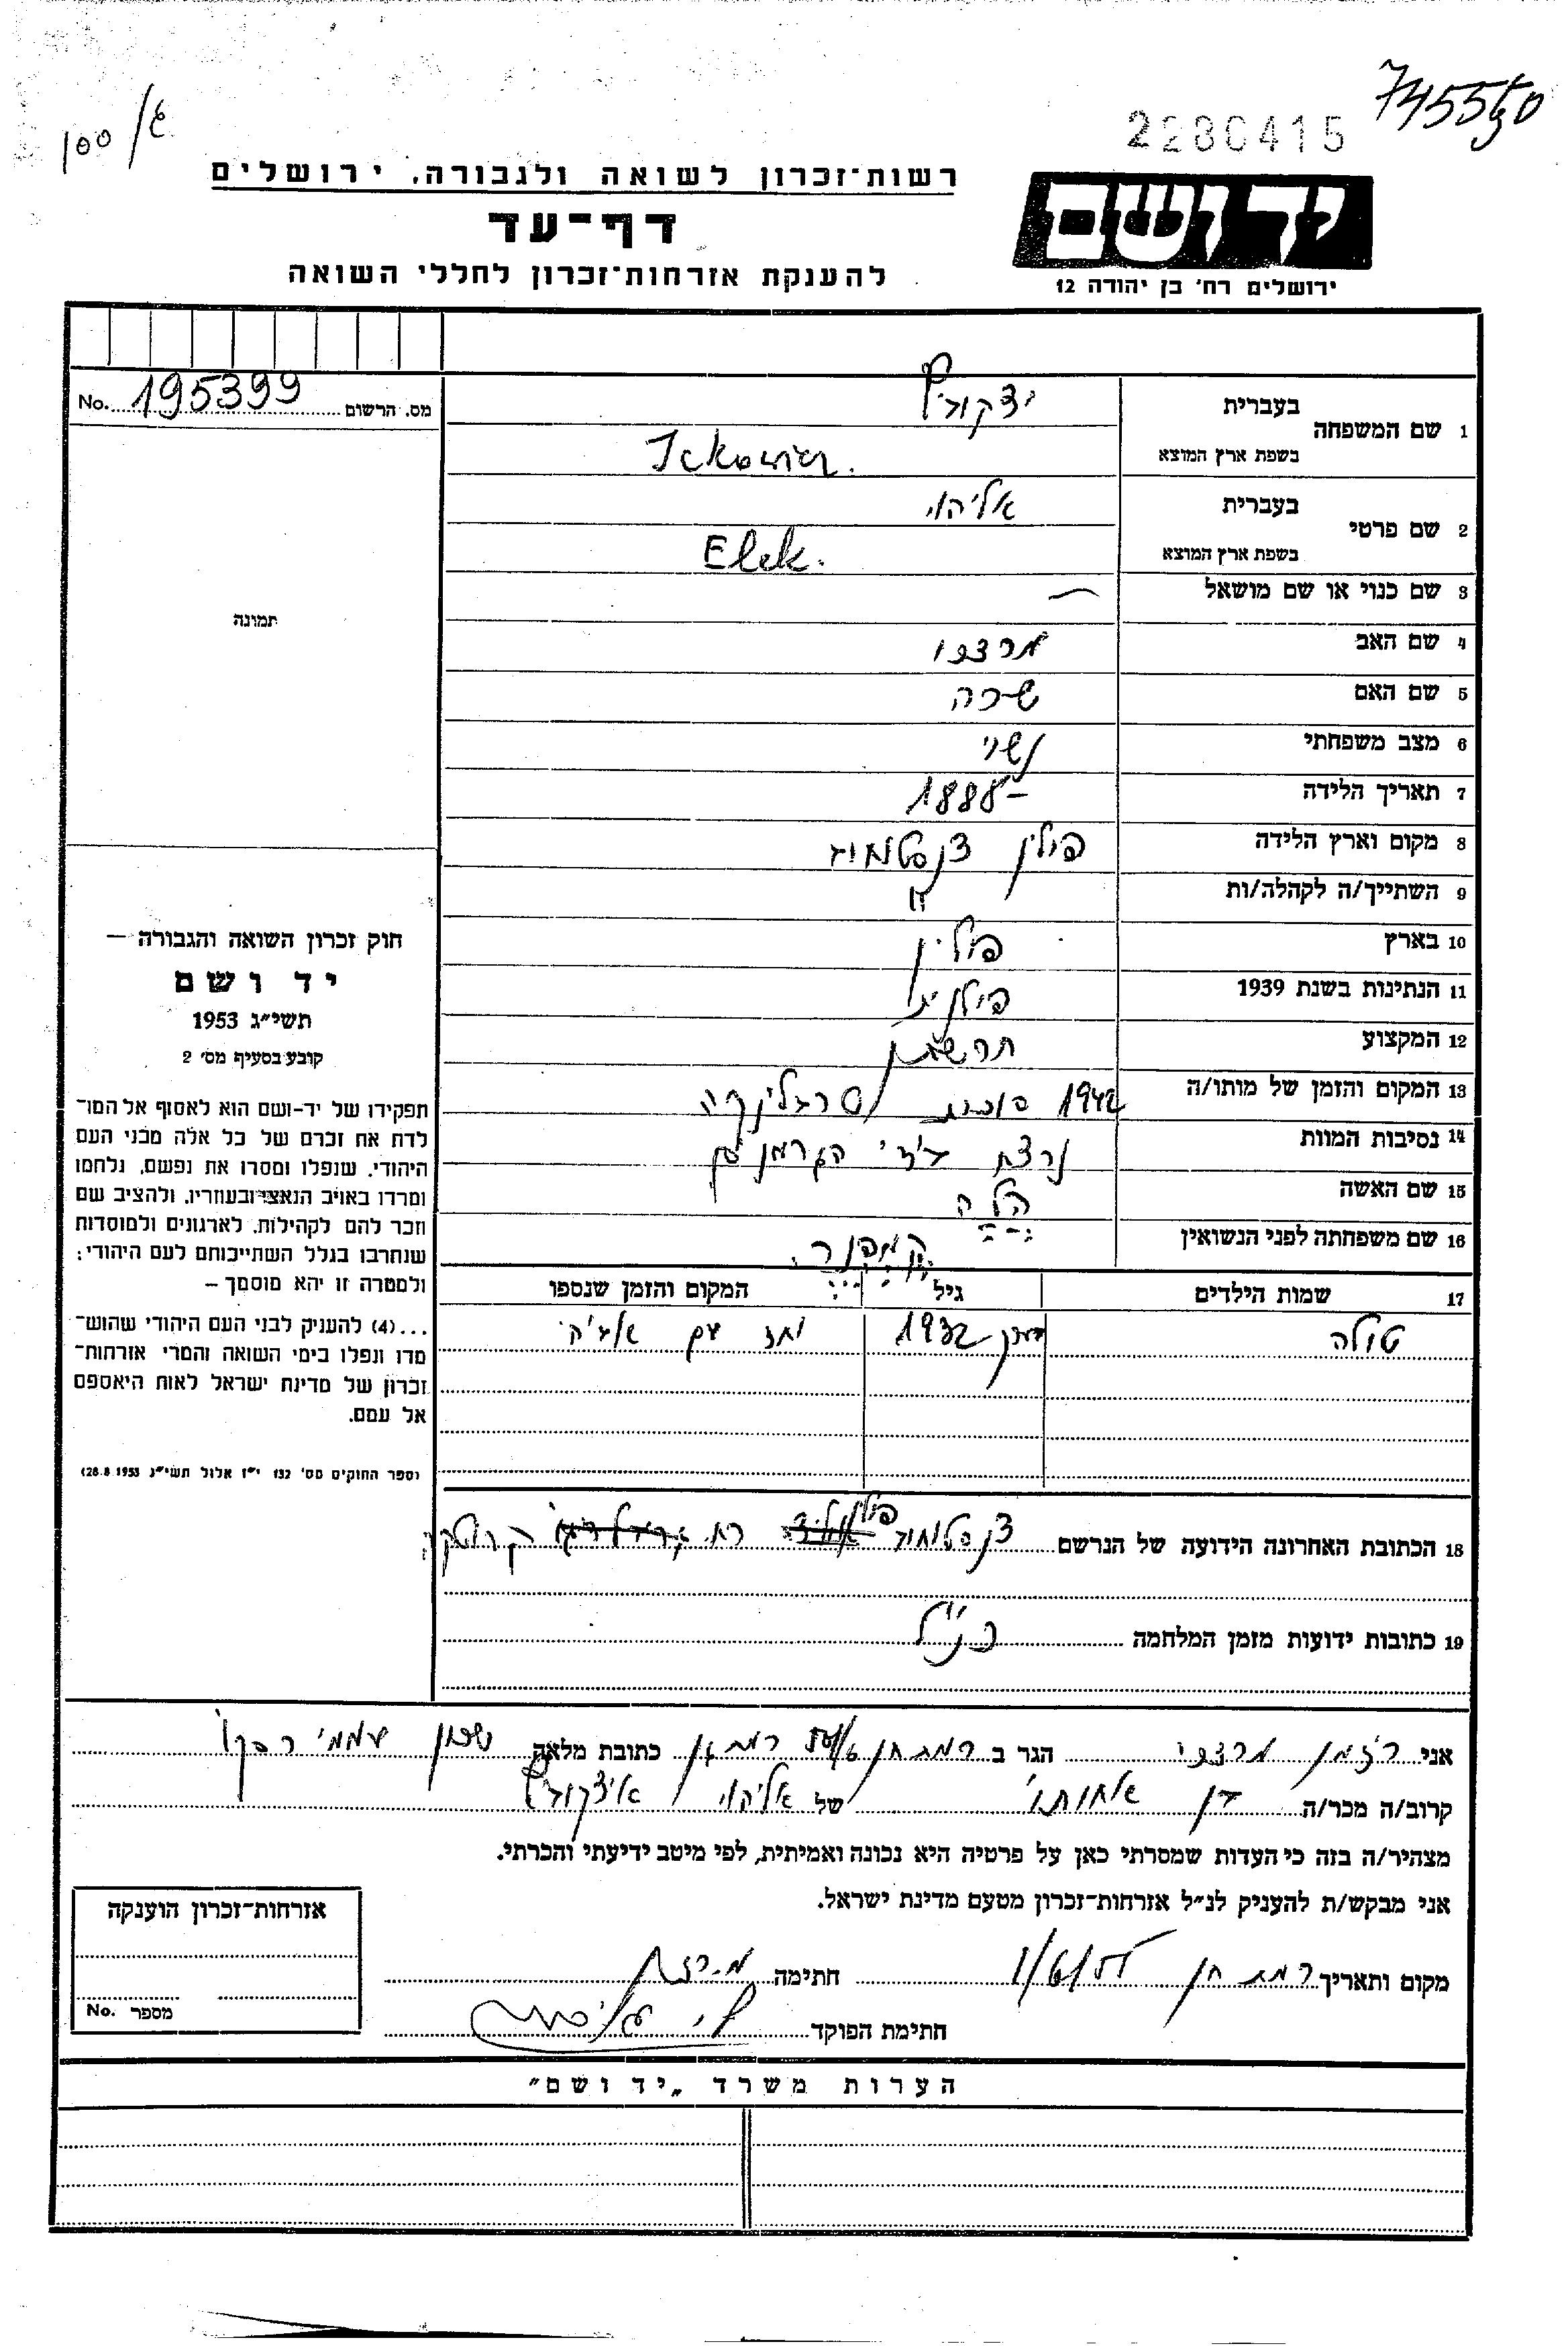 100/ג
2280415
745550
רשות־זכרון לשואה ולגבורה, ירושלים
דף־עד
להענקת אזרחות־זכרון לחללי השואה
יד ושם
ירושלים רח' בן יהודה 12
מס. הרשום 195399 No.
תמונה
1 שם המשפחה
בעברית יצקוביץ
בשפת ארץ המוצא Ickowicz.
2 שם פרטי
בעברית אליהו
בשפת ארץ המוצא Elek.
3 שם כנוי או שם מושאל —
4 שם האב
5 שם האם שרה
6 מצב משפחתי נשוי
7 תאריך הלידה 1888-
8 מקום וארץ הלידה פולין צ'נסטחוב
9 השתייך/ה לקהלה/ות "
10 בארץ פולין
11 הנתינות בשנת 1939 פולנית
12 המקצוע
13 המקום והזמן של מותו/ה 1942 טרבלינקה
14 נסיבות המוות נרצח בידי הגרמנים
15 שם האשה הלה
16 שם משפחתה לפני הנשואין
17 שמות הילדים גיל המקום והזמן שנספו
טולה 1932 יחד עם אביה
18 הכתובת האחרונה הידועה של הנרשם צ'נסטוחוב פולין רח.
19 כתובות ידועות מזמן המלחמה כנ"ל
חוק זכרון השואה והגבורה —
יד ושם
תשי״ג 1953
קובע בסעיף מס׳ 2
תפקידו של יד-ושם הוא לאסוף אל המו־
לדת את זכרם של כל אלה מבני העם
היהודי, שנפלו ומסרו את נפשם, נלחמו
ומרדו באויב הנאצי ובעוזריו, ולהציב שם
וזכר להם לקהילות, לארגונים ולמוסדות
שנחרבו בגלל השתייכותם לעם היהודי;
ולמטרה זו יהא מוסמך —
...(4) להעניק לבני העם היהודי שהוש־
מדו ונפלו בימי השואה והמרי אזרחות־
זכרון של מדינת ישראל לאות היאספם
אל עמם.
(ספר החוקים מס׳ 132 י״ז אלול תשי״ג 28.8.1953)
אני הגר ב רמת חן רמת גן כתובת מלאה שכון
קרוב/ה מכר/ה בן אחותו של אליהו איצקוביץ
מצהיר/ה בזה כי העדות שמסרתי כאן על פרטיה היא נכונה ואמיתית, לפי מיטב ידיעתי והכרתי.
אני מבקש/ת להעניק לנ״ל אזרחות־זכרון מטעם מדינת ישראל.
מקום ותאריך רמת חן חתימה
חתימת הפוקד
אזרחות־זכרון הוענקה
מספר No.
הערות משרד „יד ושם״